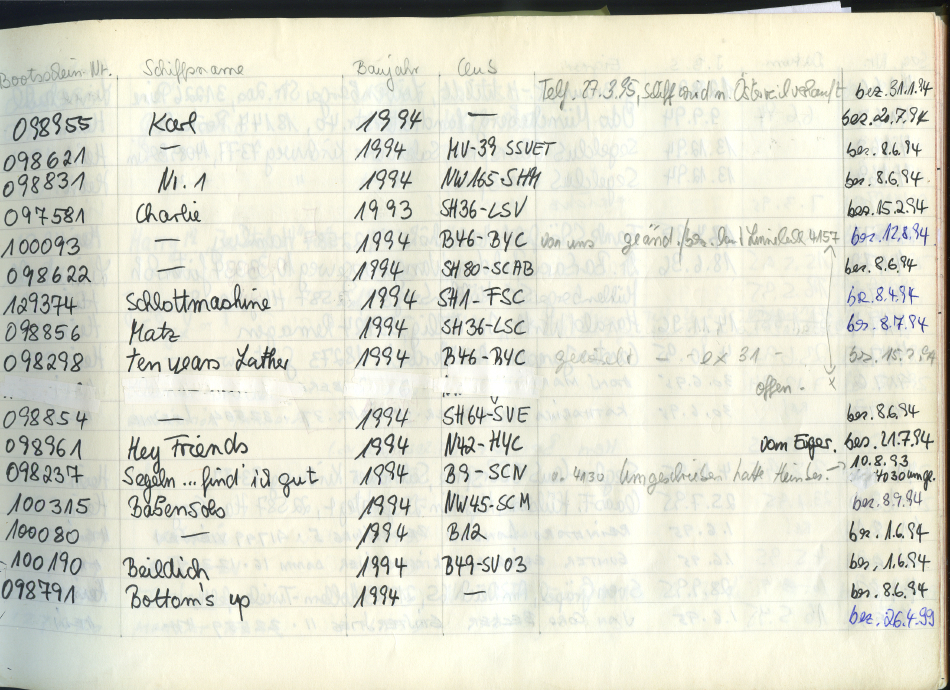 Bootsschein-Nr. Schiffsname Baujahr Club
Telf. 27.3.95, Schiff wird n. Österreich verkauft bez. 31.1.94
098955 Karl 1994 — bez. 22.7.94
098621 — 1994 HV-39 SSVET bez. 8.6.94
098831 Nr. 1 1994 NW165-SHM bez. 8.6.94
097581 Charlie 1993 SH36-LSV bez. 15.2.94
100093 — 1994 B46-BYC von uns geänd./bez. 4157 bez. 12.8.94
098622 — 1994 SH80-SCAB bez. 8.6.94
129374 Schlottmashine 1994 SH1-FSC bez. 8.4.94
098856 Matz 1994 SH36-LSC bez. 8.7.94
098298 ten years Lather 1994 B46-BYC — ex 31 - bez. 15.
offen. x
098854 — 1994 SH64-SVE bez. 8.6.94
098961 Hey Friends 1994 N42-HYC vom Eiger. bez. 21.7.94
10.8.93
098237 Segeln ... find' ich gut 1994 B9-SCN v. 4130 Umgeschrieben hatte → 4030 umge.
100315 Baßensolo 1994 NW45-SCM bez. 8.9.94
100080 — 1994 B12 bez. 1.6.94
100190 Beildich 1994 B49-SV03 bez. 1.6.94
098791 Bottom's up 1994 — bez. 8.6.94
bez. 26.4.99